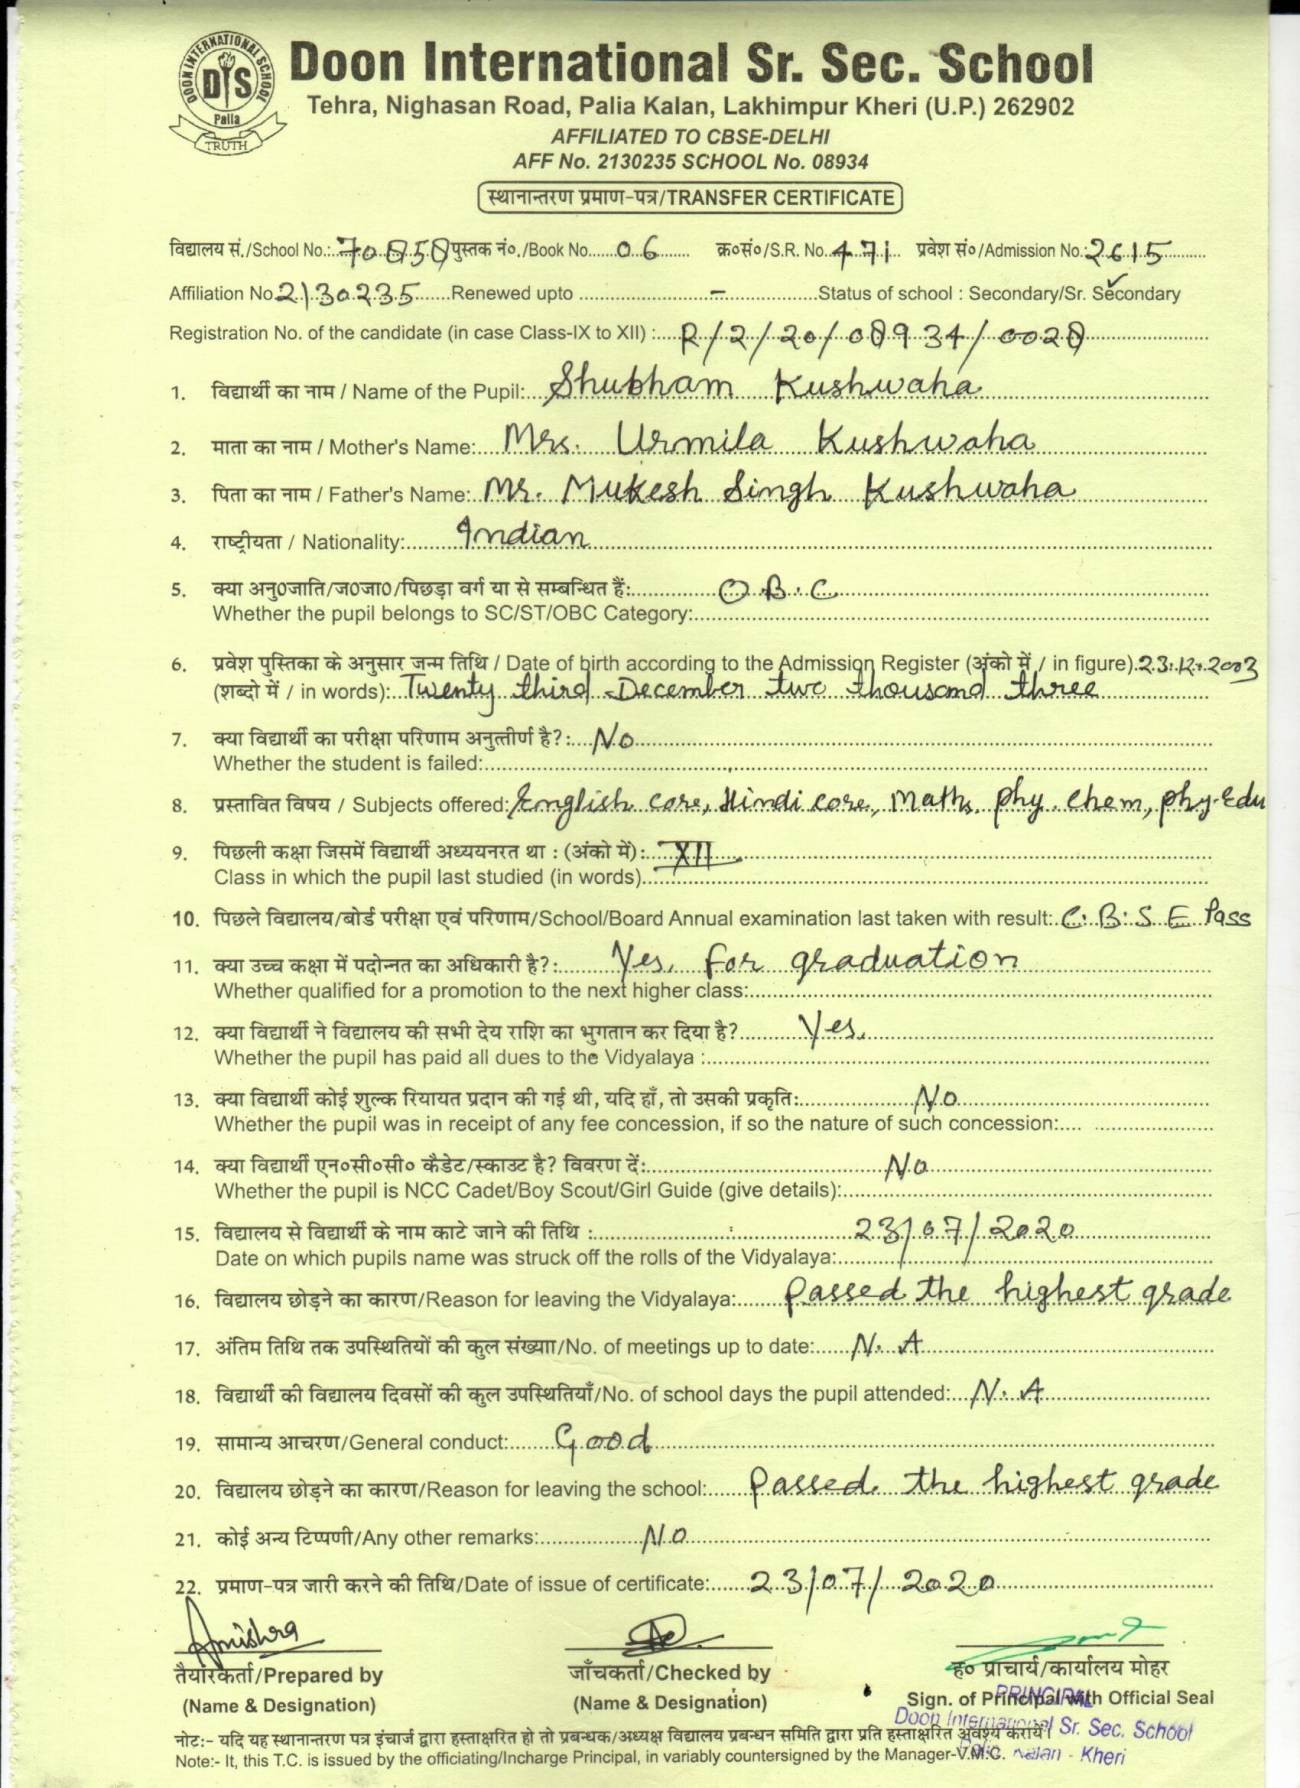 DOON INTERNATIONAL SCHOOL
DIS
Palia
TRUTH
Doon International Sr. Sec. School
Tehra, Nighasan Road, Palia Kalan, Lakhimpur Kheri (U.P.) 262902
AFFILIATED TO CBSE-DELHI
AFF No. 2130235 SCHOOL No. 08934
स्थानान्तरण प्रमाण-पत्र/TRANSFER CERTIFICATE
विद्यालय सं./School No.: 70858 पुस्तक नं०./Book No. 06 क्र०सं०/S.R. No. 471 प्रवेश सं०/Admission No.: 2615
Affiliation No 2130235 Renewed upto - Status of school : Secondary/Sr. Secondary
Registration No. of the candidate (in case Class-IX to XII) : R/2/20/08934/0028
1. विद्यार्थी का नाम / Name of the Pupil: Shubham Kushwaha
2. माता का नाम / Mother's Name: Mrs. Urmila Kushwaha
3. पिता का नाम / Father's Name: Mr. Mukesh Singh Kushwaha
4. राष्ट्रीयता / Nationality: Indian
5. क्या अनु0जाति/ज0जा0/पिछड़ा वर्ग या से सम्बन्धित हैं: O.B.C
Whether the pupil belongs to SC/ST/OBC Category:
6. प्रवेश पुस्तिका के अनुसार जन्म तिथि / Date of birth according to the Admission Register (अंको में / in figure) 23.12.2003
(शब्दो में / in words): Twenty third December two thousand three
7. क्या विद्यार्थी का परीक्षा परिणाम अनुत्तीर्ण है?: No
Whether the student is failed:
8. प्रस्तावित विषय / Subjects offered: English core, Hindi core, Maths, Phy. Chem, Phy. Edu
9. पिछली कक्षा जिसमें विद्यार्थी अध्ययनरत था : (अंको में): XII
Class in which the pupil last studied (in words)
10. पिछले विद्यालय/बोर्ड परीक्षा एवं परिणाम/School/Board Annual examination last taken with result: C.B.S.E Pass
11. क्या उच्च कक्षा में पदोन्नत का अधिकारी है?: Yes, for graduation
Whether qualified for a promotion to the next higher class:
12. क्या विद्यार्थी ने विद्यालय की सभी देय राशि का भुगतान कर दिया है? Yes.
Whether the pupil has paid all dues to the Vidyalaya :
13. क्या विद्यार्थी कोई शुल्क रियायत प्रदान की गई थी, यदि हाँ, तो उसकी प्रकृति: No
Whether the pupil was in receipt of any fee concession, if so the nature of such concession:
14. क्या विद्यार्थी एन०सी०सी० कैडेट/स्काउट है? विवरण दें: No
Whether the pupil is NCC Cadet/Boy Scout/Girl Guide (give details):
15. विद्यालय से विद्यार्थी के नाम काटे जाने की तिथि : 23/07/2020
Date on which pupils name was struck off the rolls of the Vidyalaya:
16. विद्यालय छोड़ने का कारण/Reason for leaving the Vidyalaya: Passed the highest grade
17. अंतिम तिथि तक उपस्थितियों की कुल संख्याा/No. of meetings up to date: N.A
18. विद्यार्थी की विद्यालय दिवसों की कुल उपस्थितियाँ/No. of school days the pupil attended: N.A
19. सामान्य आचरण/General conduct: Good
20. विद्यालय छोड़ने का कारण/Reason for leaving the school: Passed the highest grade
21. कोई अन्य टिप्पणी/Any other remarks: No
22. प्रमाण-पत्र जारी करने की तिथि/Date of issue of certificate: 23/07/2020
तैयारकर्ता/Prepared by जाँचकर्ता/Checked by ह० प्राचार्य/कार्यालय मोहर
(Name & Designation) (Name & Designation) Sign. of Principal with Official Seal
PRINCIPAL
Doon International Sr. Sec. School
Kalan - Kheri
नोट:- यदि यह स्थानान्तरण पत्र इंचार्ज द्वारा हस्ताक्षरित हो तो प्रबन्धक/अध्यक्ष विद्यालय प्रबन्धन समिति द्वारा प्रति हस्ताक्षरित अवश्य करायें।
Note:- It, this T.C. is issued by the officiating/Incharge Principal, in variably countersigned by the Manager-V.M.C.